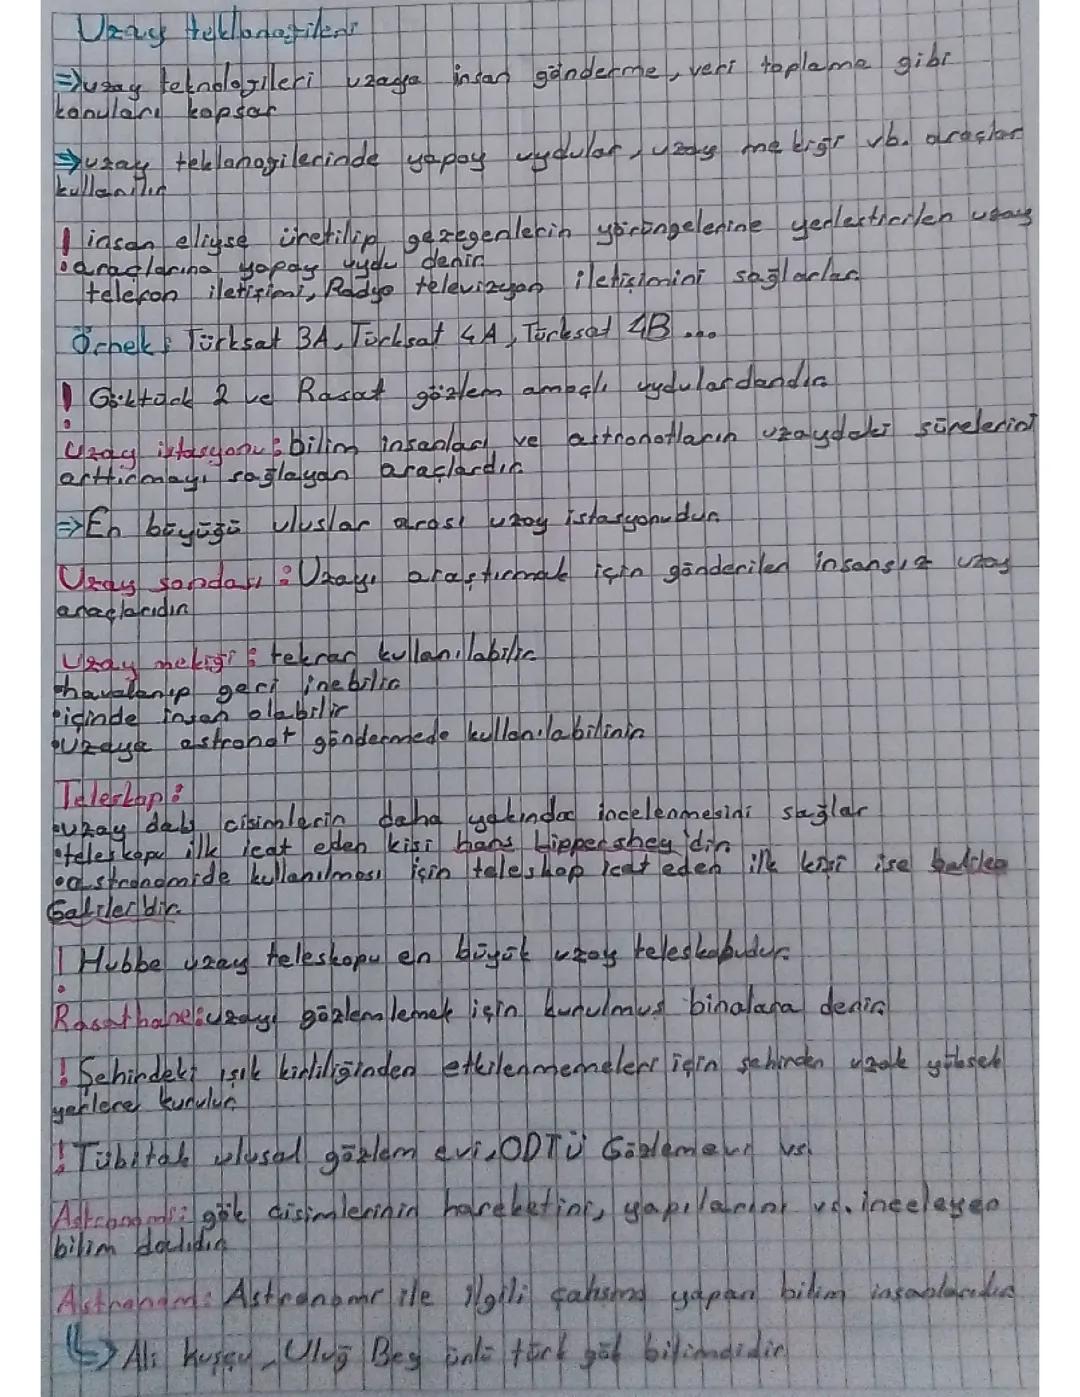 Uzay teklonojileri
⇒uzay teknolojileri uzaya insan gönderme, veri toplama gibi
konuları kapsar
⇒uzay teklanojilerinde yapay uydular, uzay mekiği vb. araçlar
kullanılır
! insan eliyse üretilip gezegenlerin yörüngelerine yerlestirilen uzay
araçlarına yapay uydu denir
telefon iletişimi, Radyo televizyon iletişimini sağlarlar
Örnek: Türksat 3A, Türksat 4A, Türksat 4B ...
! Göktürk 2 ve Rasat gözlem amaçlı uydulardandır
Uzay istasyonu: bilim insanları ve astronotların uzaydaki sürelerini
arttırmayı sağlayan araçlardır
⇒En büyüğü uluslar arası uzay istasyonudur
Uzay sondası: Uzayı araştırmak için gönderilen insansız uzay
araçlarıdır
Uzay mekiği: tekrar kullanılabilir
•havalanıp geri inebilir
•içinde insan olabilir
•Uzaya astronot göndermede kullanılabilinir
Teleskop:
•uzay daki cisimlerin daha yakından incelenmesini sağlar
•teleskopu ilk icat eden kisi hans Lippershey'dir
•astronomide kullanılması için teleskop icat eden ilk kişi ise
Galilei'dir
! Hubbe uzay teleskopu en büyük uzay teleskobudur.
Rasathane: uzayı gözlemlemek için kurulmus binalara denir
! Şehirdeki ışık kirliliğinden etkilenmemeleri için şehirden uzak yüksek
yerlere kurulur
! Tübitak ulusal gözlem evi, ODTÜ Gözlemevi vs.
Astronomi: gök cisimlerinin hareketini, yapılarını vs. inceleyen
bilim dalıdır
Astronom: Astronomi ile ilgili çalısma yapan bilim insanlarıdır
↳ Ali kuşçu, Uluğ Bey ünlü türk gök bilimcidir